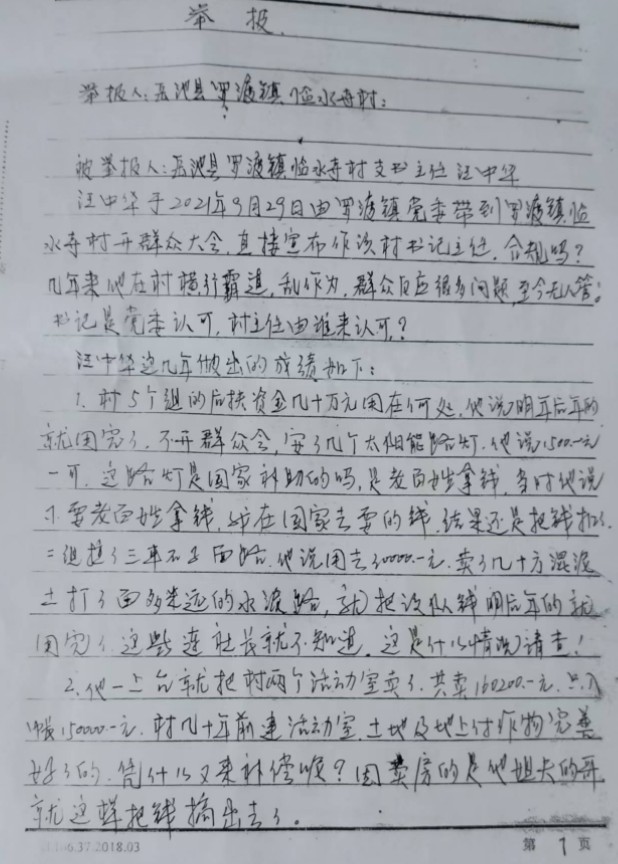 举报
举报人:岳池县罗渡镇临水寺村:
被举报人:岳池县罗渡镇临水寺村支书主任汪中华
汪中华于2021年9月29日由罗渡镇党委带到罗渡镇临
水寺村开群众大会,直接宣布作该村书记主任,合规吗?
几年来他在村横行霸道,乱作为,群众反应很多问题,至今无人管;
书记是党委认可,村主任由谁来认可?
汪中华这几年做出的成绩如下:
1.村5个组的后扶资金几十万元用在何处,他说明年后年的
就用完了,不开群众会,安了几个太阳能路灯,他说1500.-元
一可,这路灯是国家补助的吗,是老百姓拿钱,当时他说
不要老百姓拿钱,我在国家去要的钱,结果还是把钱扣了
二组挂了三车石子面路,他说用去30000.-元,卖了几十方混泥
土打了面多米远的水渡路,就把该队钱明后年的就
用完了,这些连社长就不知道,这是什么情况请查!
2.他一上台就把村两个活动室卖了,共卖160200-元,只入
帐150000-元,村几十年前建活动室,土地及地上付作物完善
好了的,凭什么又来补偿呢?因卖房的是他姐夫的哥
就这样把钱搞出去了。
6.37.2018.03
第 1 页